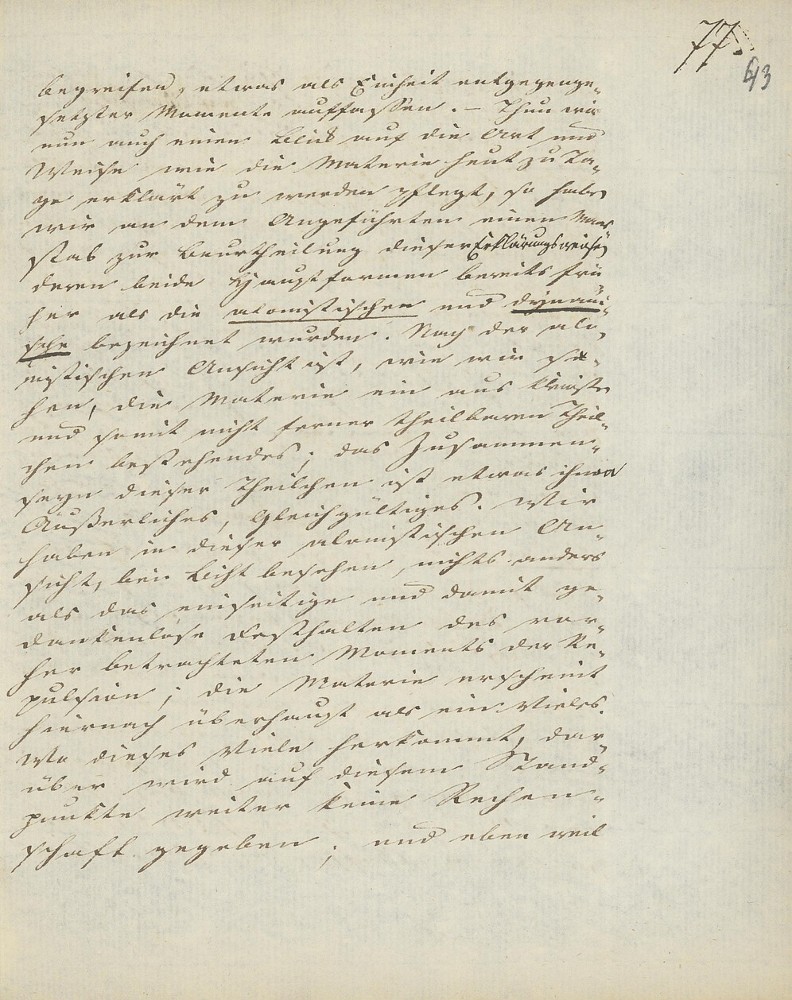 77.
43
begreifen, etwas als Einheit entgegenge-
setzter Momente auffassen. – Thun wir
nun auch einen Blick auf die Art und
Weise wie die Materie heut zu Ta-
ge erklärt zu werden pflegt, so haben
wir an dem Angeführten einen Maas
stab zur Beurtheilung dieser Erklärungsweise,
deren beide Hauptformen bereits frü
her als die atomistischen und dynami-
sche bezeichnet wurden. Nach der ato-
mistischen Ansicht ist, wie wir se-
hen, die Materie ein aus kleinsten
und somit nicht ferner theilbaren Theil-
chen bestehendes; das Zusammen-
seyn dieser Theilchen ist etwas ihnen
Äußerliches, Gleichgültiges. Wir
haben in dieser atomistischen An-
sicht, bei Licht besehen, nichts anders
als das einseitige und damit ge-
dankenlose Festhalten des vor-
her betrachteten Moments der Re-
pulsion; die Materie erscheint
hiernach überhaupt als ein Vieles.
Wo dieses Viele herkommt, dar
über wird auf diesem Stand-
punkte weiter keine Rechen-
schaft gegeben; und eben weil